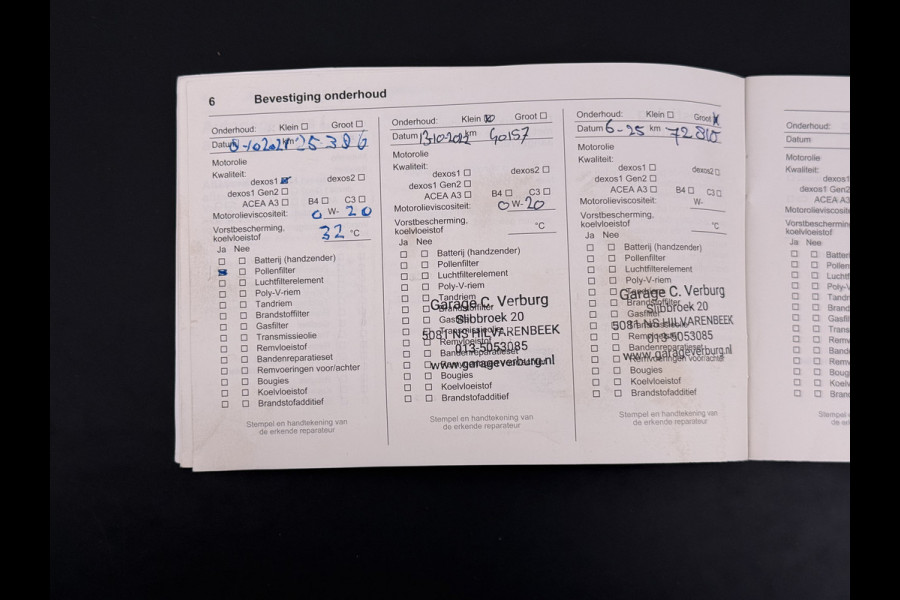 6 Bevestiging onderhoud
Onderhoud: Klein ☐ Groot ☐
Datum km 25386
Motorolie
Kwaliteit:
dexos1 ☒ dexos2 ☐
dexos1 Gen2 ☐
ACEA A3 ☐ B4 ☐ C3 ☐
Motorolieviscositeit: 0 W- 20
Vorstbescherming,
koelvloeistof 32 °C
Ja Nee
☐ ☐ Batterij (handzender)
☒ ☐ Pollenfilter
☐ ☐ Luchtfilterelement
☐ ☐ Poly-V-riem
☐ ☐ Tandriem
☐ ☐ Brandstoffilter
☐ ☐ Gasfilter
☐ ☐ Transmissieolie
☐ ☐ Remvloeistof
☐ ☐ Bandenreparatieset
☐ ☐ Remvoeringen voor/achter
☐ ☐ Bougies
☐ ☐ Koelvloeistof
☐ ☐ Brandstofadditief
Stempel en handtekening van
de erkende reparateur
Onderhoud: Klein ☒ Groot ☐
Datum 13-10-2022 km 40157
Motorolie
Kwaliteit:
dexos1 ☐ dexos2 ☐
dexos1 Gen2 ☐
ACEA A3 ☐ B4 ☐ C3 ☐
Motorolieviscositeit: 0 W- 20
Vorstbescherming,
koelvloeistof °C
Ja Nee
☐ ☐ Batterij (handzender)
☐ ☐ Pollenfilter
☐ ☐ Luchtfilterelement
☐ ☐ Poly-V-riem
☐ ☐ Tandriem
Garage C. Verburg
☐ ☐ Brandstoffilter
Slibbroek 20
☐ ☐ Gasfilter
☐ ☐ Transmissieolie
5081 NS HILVARENBEEK
☐ ☐ Remvloeistof
013-5053085
☐ ☐ Bandenreparatieset
☐ ☐ Remvoeringen voor/achter
www.garageverburg.nl
☐ ☐ Bougies
☐ ☐ Koelvloeistof
☐ ☐ Brandstofadditief
Stempel en handtekening van
de erkende reparateur
Onderhoud: Klein ☐ Groot ☒
Datum 6-25 km 72810
Motorolie
Kwaliteit:
dexos1 ☐ dexos2 ☐
dexos1 Gen2 ☐
ACEA A3 ☐ B4 ☐ C3 ☐
Motorolieviscositeit: W-
Vorstbescherming,
koelvloeistof °C
Ja Nee
☐ ☐ Batterij (handzender)
☐ ☐ Pollenfilter
☐ ☐ Luchtfilterelement
☐ ☐ Poly-V-riem
☐ ☐ Tandriem
Garage C. Verburg
☐ ☐ Brandstoffilter
Slibbroek 20
☐ ☐ Gasfilter
5081 NS HILVARENBEEK
☐ ☐ Remvloeistof
013-5053085
☐ ☐ Bandenreparatieset
www.garageverburg.nl
☐ ☐ Remvoeringen voor/achter
☐ ☐ Bougies
☐ ☐ Koelvloeistof
☐ ☐ Brandstofadditief
Stempel en handtekening van
de erkende reparateur
Onderhoud:
Datum:
Motorolie
Kwaliteit:
dexos1
dexos1 Gen2
ACEA A3
Motorolieviscositeit
koelvloeistof
Ja Nee